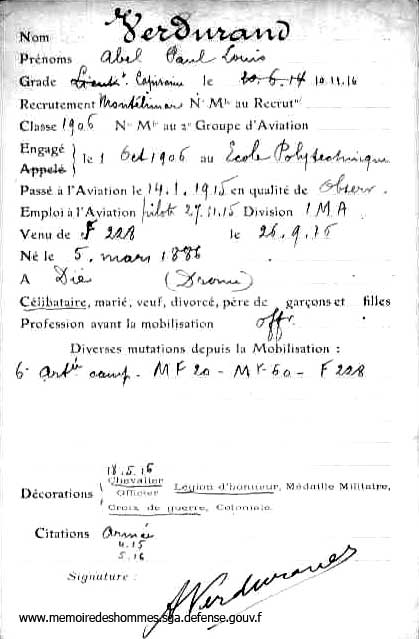 Nom Verdurand
Prénoms Abel Paul Louis
Grade Lieut^t. Capitaine le 20.6.14 10.11.16
Recrutement Montélimar N° M^le au Recrut^nt
Classe 1906 N° M^le au 2^e Groupe d'Aviation
Engagé
Appelé } le 1 Oct 1906 au Ecole Polytechnique
Passé à l'Aviation le 14.1.1915 en qualité de Observ.
Emploi à l'Aviation pilote 27.11.15 Division I M A
Venu de F 228 le 26.9.16
Né le 5. mars 1886
A Die (Drome)
Célibataire, marié, veuf, divorcé, père de garçons et filles
Profession avant la mobilisation offr.
Diverses mutations depuis la Mobilisation :
6e artie camp. - MF 20 - MF 60 - F 228
18.5.16
Décorations { Chevalier
Officier Légion d'honneur, Médaille Militaire,
Croix de guerre, Coloniale.
Citations Armée
4.15
5.16
Signature : AVerdurand
www.memoiredeshommes.sga.defense.gouv.f